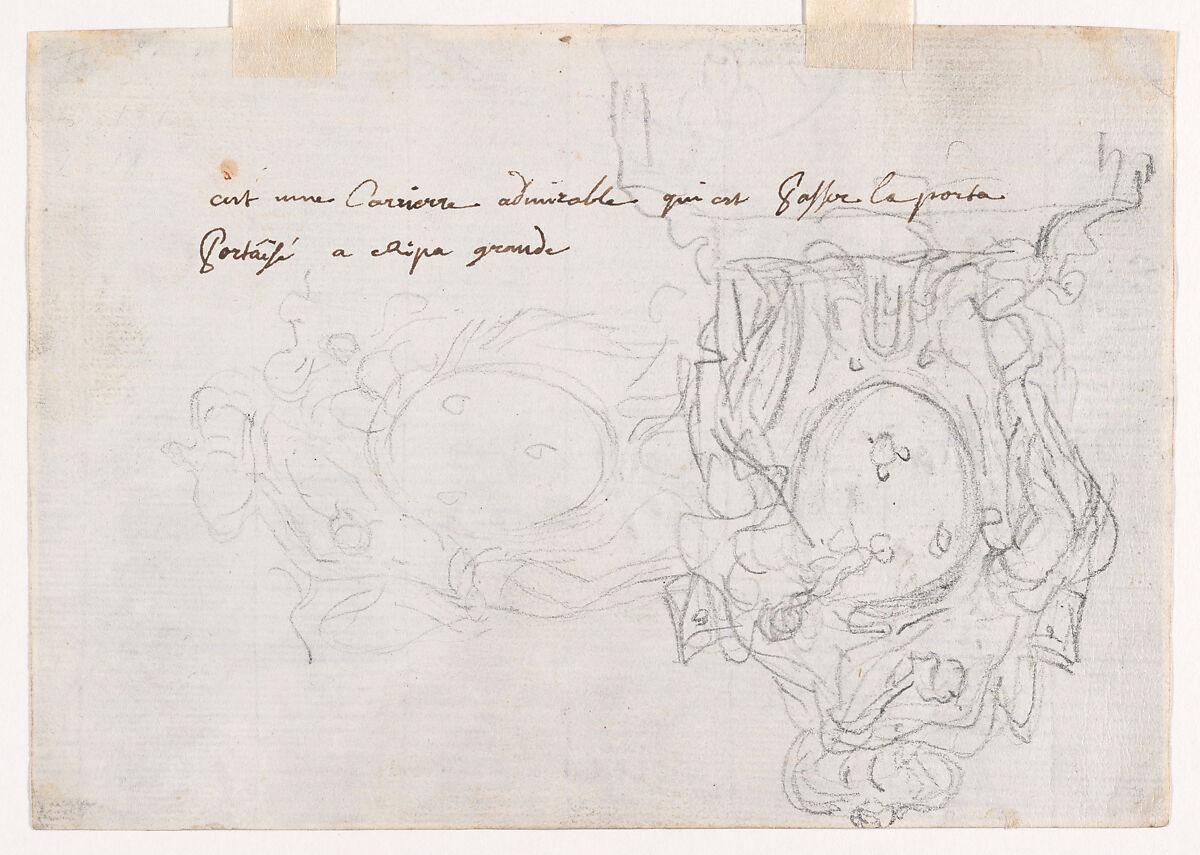 cest une Carrierre admirable qui est Passer la porta
a Ripa grande